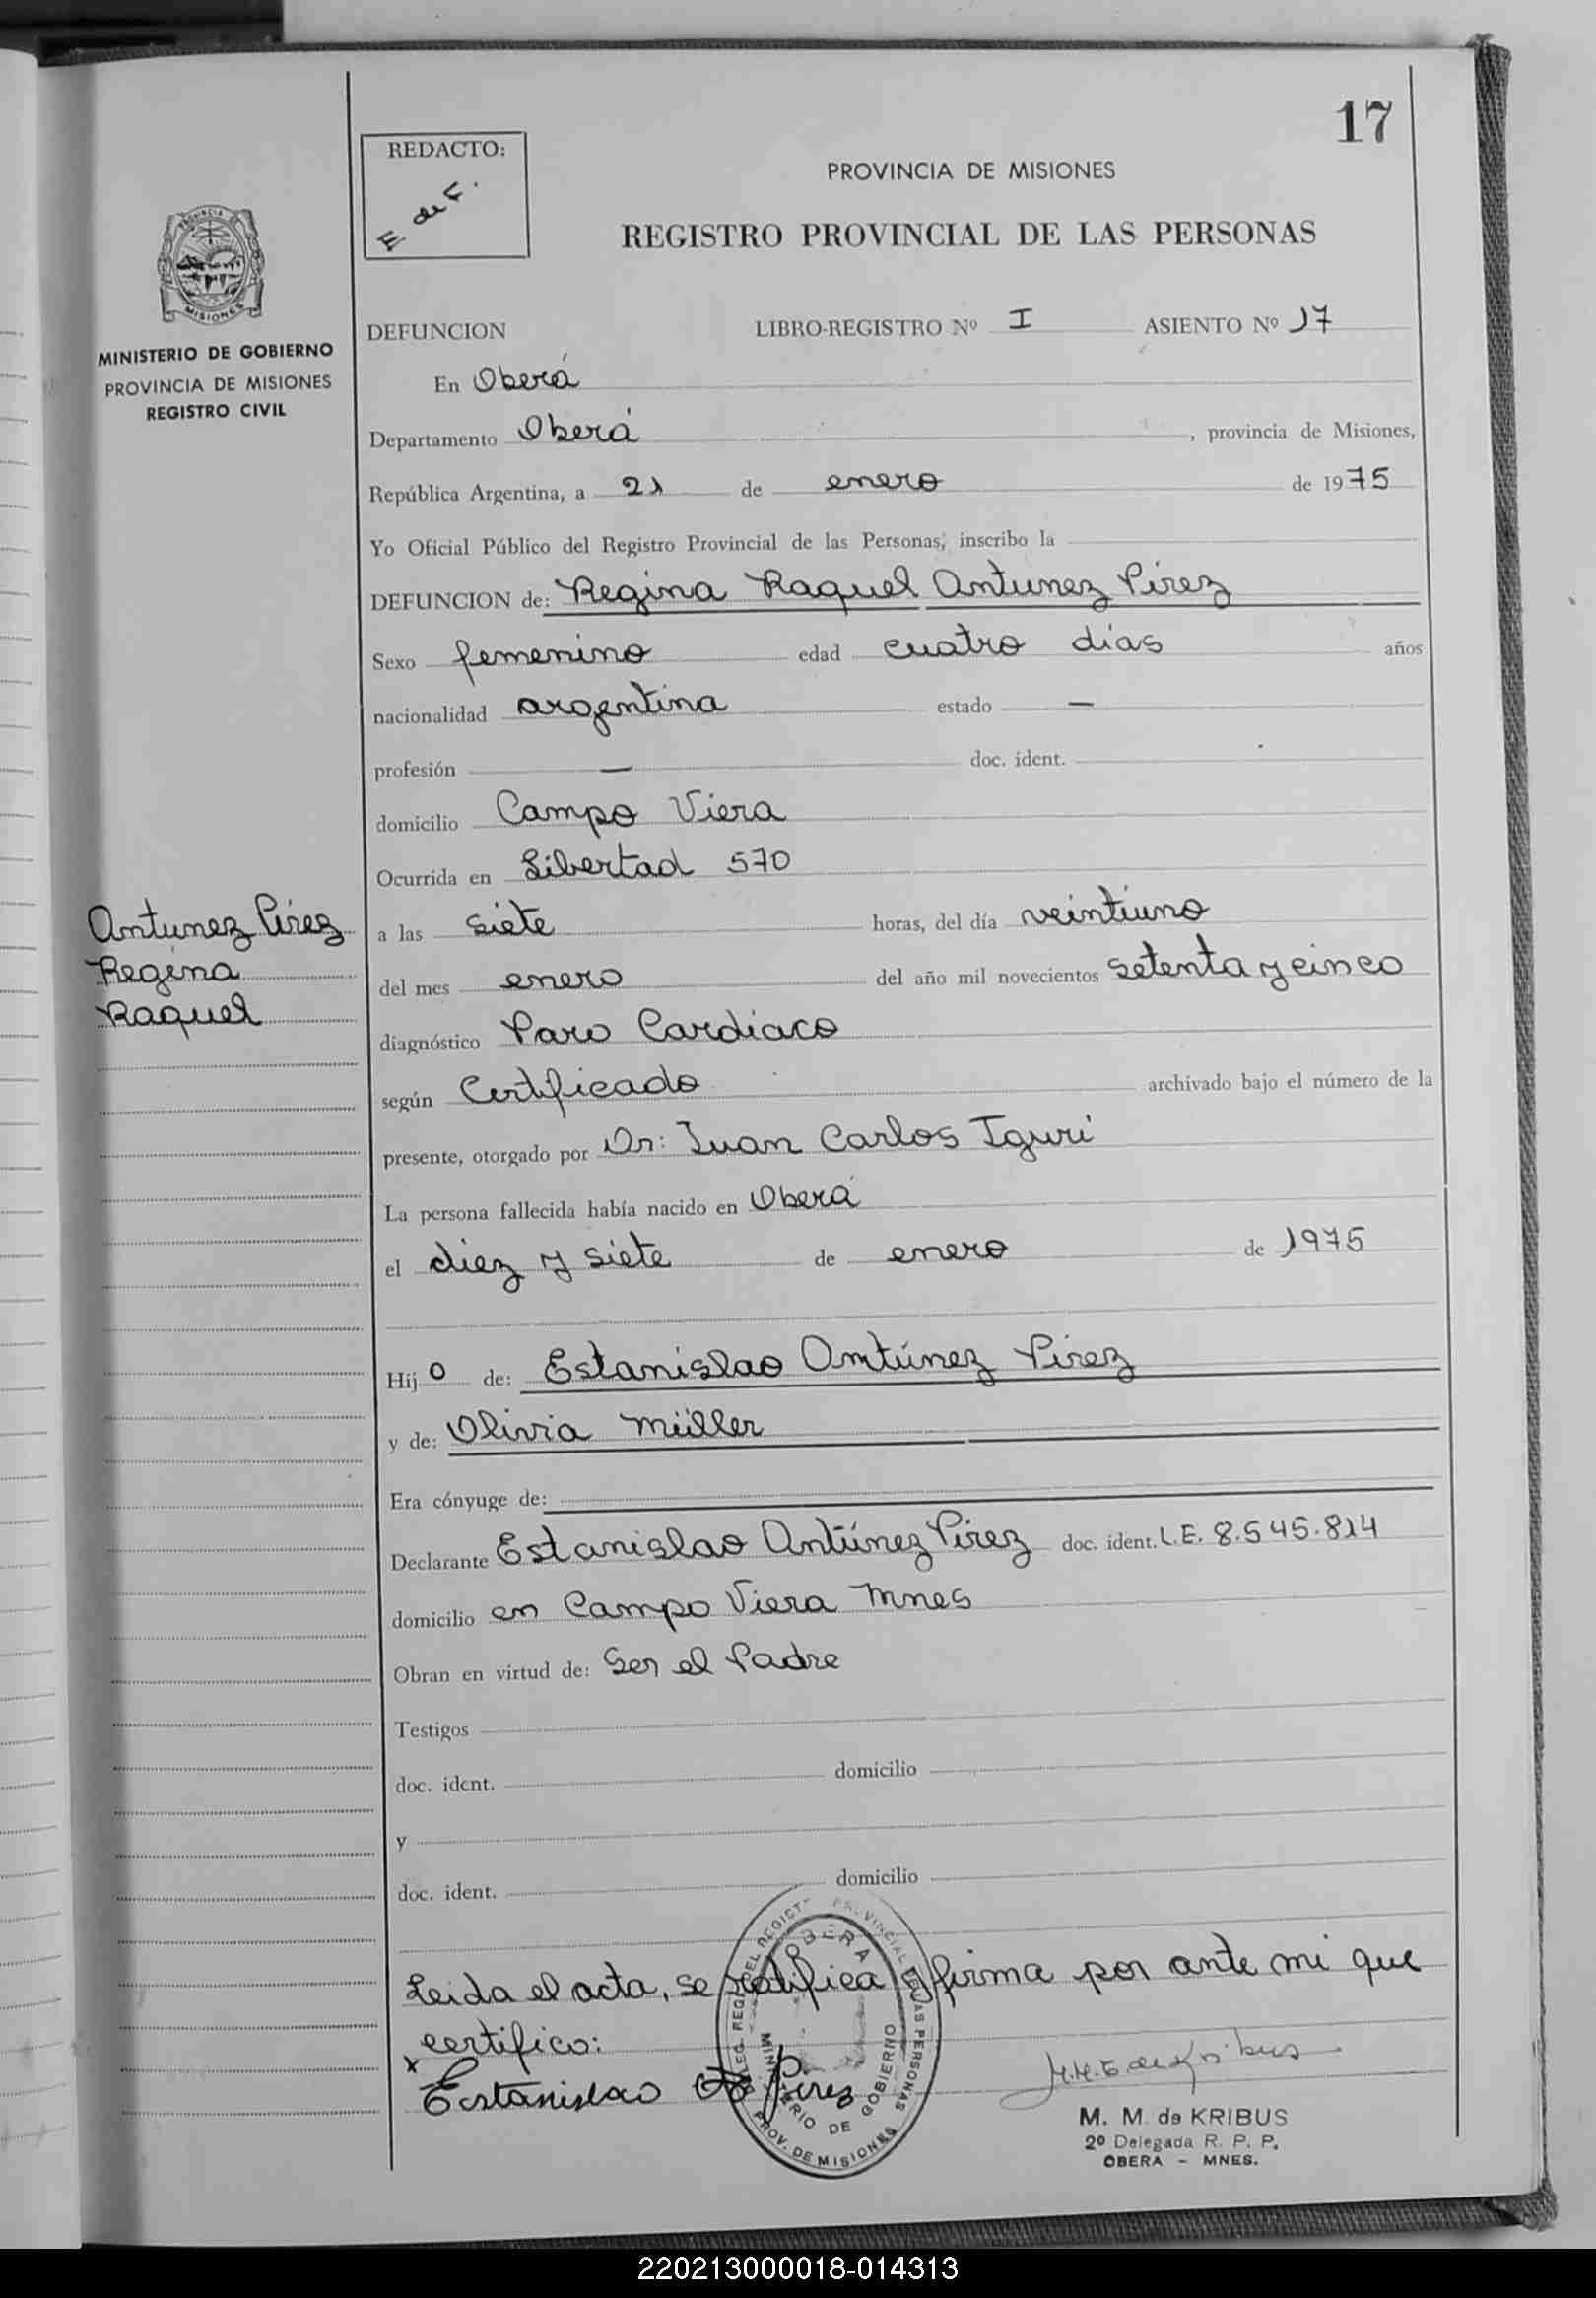 17
REDACTO:
E de F.
PROVINCIA DE MISIONES
REGISTRO PROVINCIAL DE LAS PERSONAS
PROVINCIA DE
MISIONES
MINISTERIO DE GOBIERNO
PROVINCIA DE MISIONES
REGISTRO CIVIL
DEFUNCION LIBRO-REGISTRO Nº I ASIENTO Nº 17
En Oberá
Departamento Oberá, provincia de Misiones,
República Argentina, a 21 de enero de 1975
Yo Oficial Público del Registro Provincial de las Personas, inscribo la
DEFUNCION de: Regina Raquel Antunez Pirez
Sexo femenino edad cuatro dias años
nacionalidad argentina estado —
profesión — doc. ident.
domicilio Campo Viera
Ocurrida en Libertad 570
Antunez Pirez
Regina
Raquel
a las siete horas, del día veintiuno
del mes enero del año mil novecientos setenta y cinco
diagnóstico Paro Cardiaco
según Certificado archivado bajo el número de la
presente, otorgado por Dr: Juan Carlos Iguri
La persona fallecida había nacido en Oberá
el diez y siete de enero de 1975
Hij o de: Estanislao Antúnez Pirez
y de: Olivia Müller
Era cónyuge de:
Declarante Estanislao Antúnez Pirez doc. ident. L.E. 8.545.814
domicilio en Campo Viera Mnes
Obran en virtud de: Ser el Padre
Testigos
doc. ident. domicilio
y
doc. ident. domicilio
Leida el acta, se ratifica y firma por ante mi que
certifico:
x Estanislao A Pirez
OBERA
MINISTERIO DE GOBIERNO
PROV. DE MISIONES
M.M. de Kribus
M. M. de KRIBUS
2º Delegada R. P. P.
OBERA - MNES.
220213000018-014313